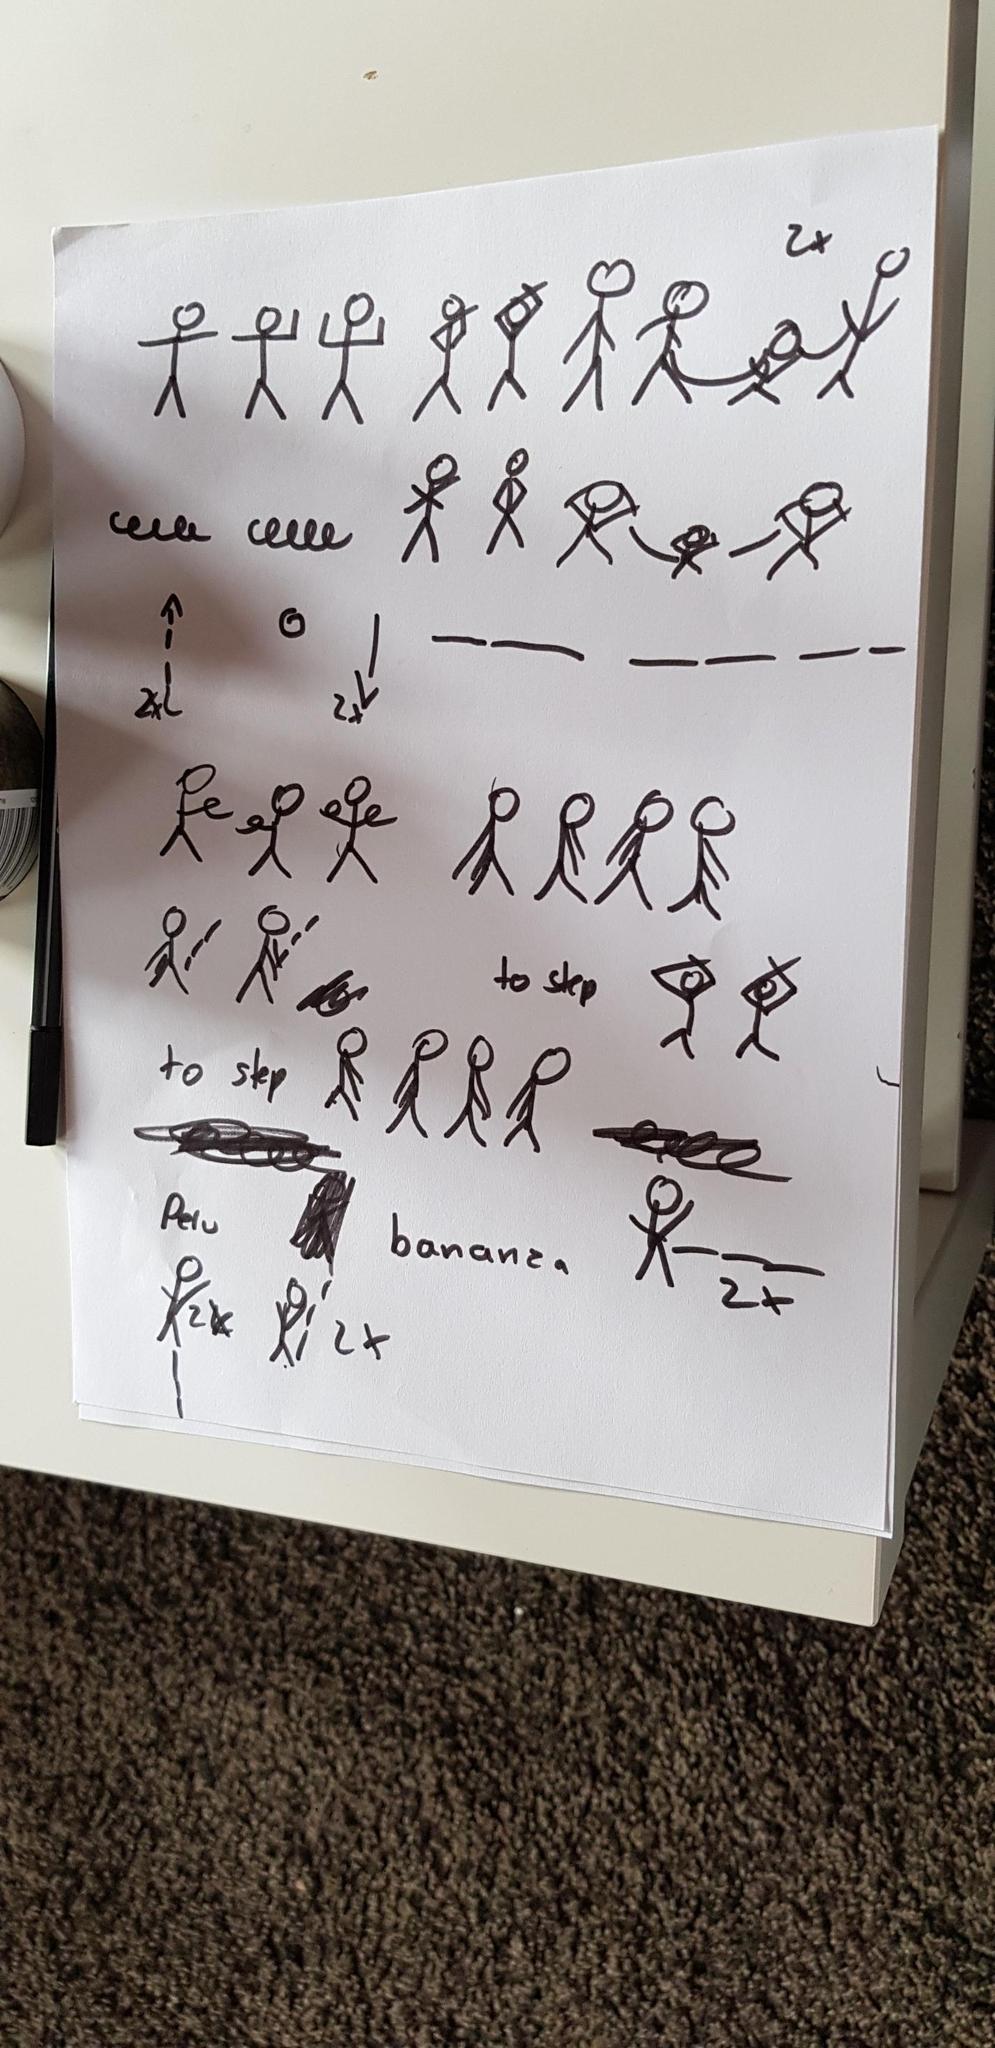 2x
2x 2x
to step
to step
Peru bananza
2x
2x 2x